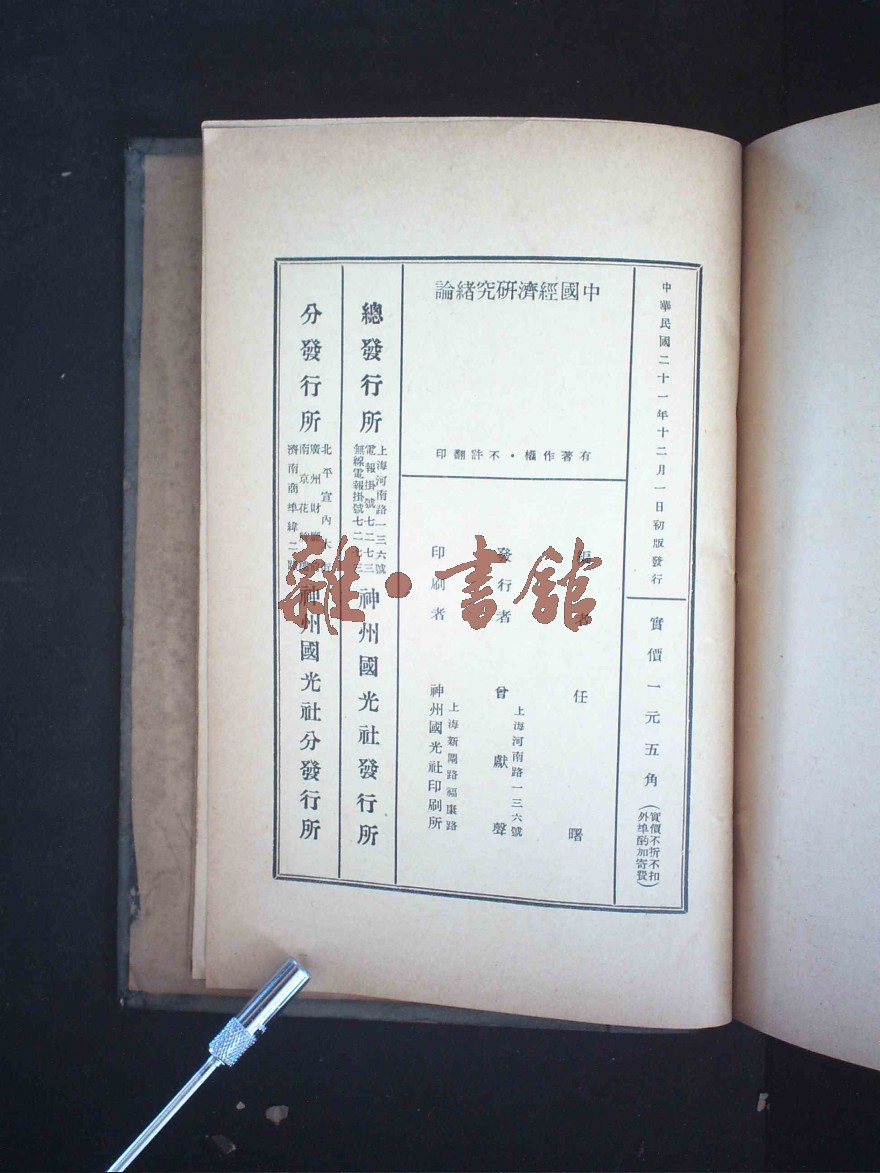 中華民國二十一年十二月一日初版發行
實價一元五角
(實價不折不扣
外埠酌加寄費)
中國經濟研究緒論
有著作權·不許翻印
者
任曙
發行者
上海河南路一三六號
曾獻聲
印刷者
上海新閘路福康路
神州國光社印刷所
總發行所
上海河南路一三六號
電報掛號七二七三
無線電報掛號七二七三
神州國光社發行所
分發行所
北平宣內大
廣州財
南京花
濟南商埠緯二
神州國光社分發行所
雜·書館